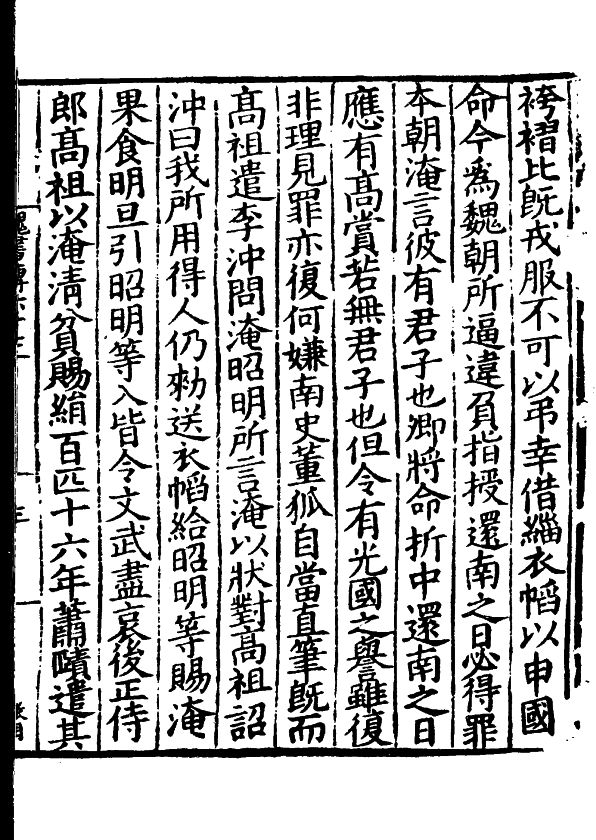 袴褶比旣戎服不可以弔幸借緇衣㡌以申國
命今爲魏朝所逼違負指授還南之日必得罪
本朝淹言彼有君子也卿將命折中還南之日
應有髙賞若無君子也但令有光國之譽雖復
非理見罪亦復何嫌南史董狐自當直筆旣而
髙祖遣李沖問淹昭明所言淹以狀對髙祖詔
沖曰我所用得人仍勑送衣㡌給昭明等賜淹
果食明旦引昭明等入皆令文武盡哀後正侍
郎髙祖以淹淸貧賜絹百匹十六年蕭賾遣其
魏書傳六十七
三